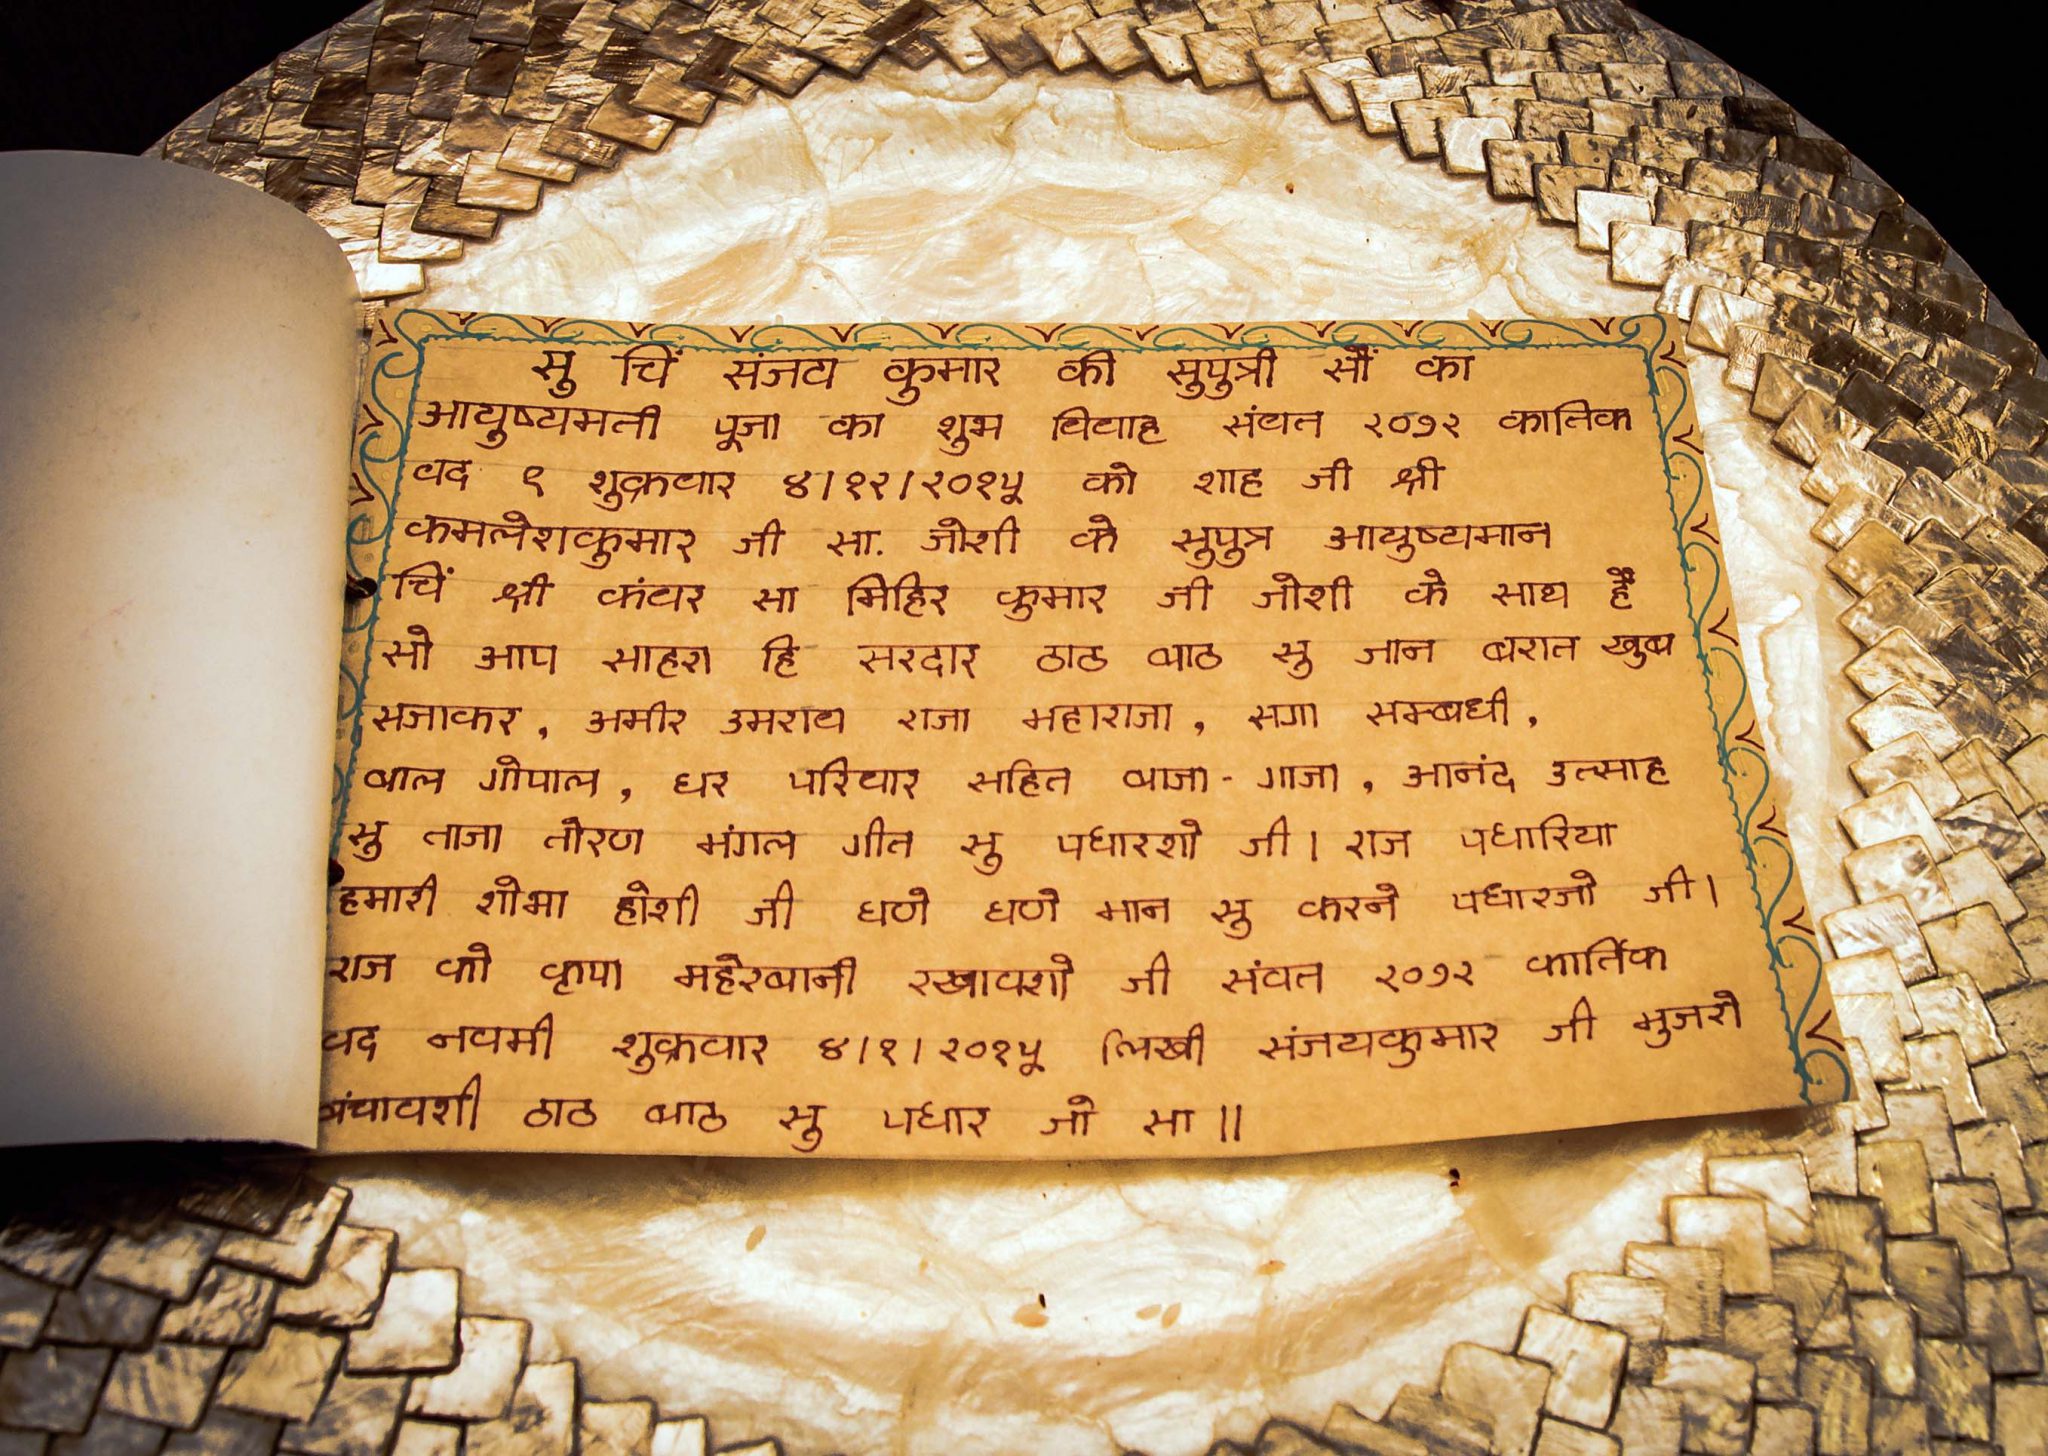 सु चिं संजय कुमार की सुपुत्री सौं का
आयुष्यमती पूजा का शुभ विवाह संवत २०७२ कार्तिक
वद ९ शुक्रवार ४/१२/२०१५ को शाह जी श्री
कमलेशकुमार जी सा. जोशी के सुपुत्र आयुष्यमान
चिं श्री कंवर सा मिहिर कुमार जी जोशी के साथ है
सो आप साहरा हि सरदार ठाठ बाठ सु जान बरात खुब
सजाकर, अमीर उमराव राजा महाराजा, सगा सम्बधी,
बाल गोपाल, घर परिवार सहित बाजा-गाजा, आनंद उत्साह
सु ताजा तोरण मंगल गीत सु पधारशो जी। राज पधारिया
हमारी शोभा होशी जी घणे घणे मान सु करने पधारजो जी।
राज को कृपा महेरबानी रखावशो जी संवत २०७२ कार्तिक
वद नवमी शुक्रवार ४/१/२०१५ लिखी संजयकुमार जी मुजरो
बंचावशी ठाठ बाठ सु पधार जो सा॥